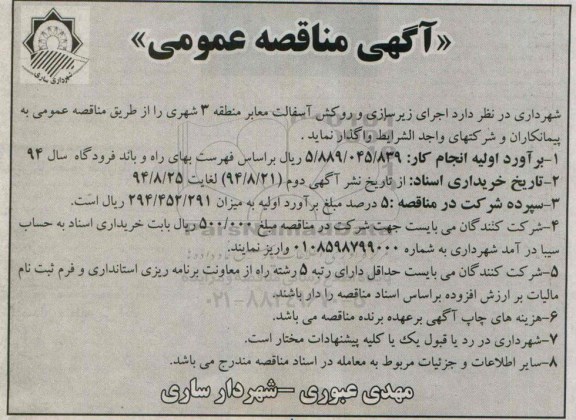 شهرداری ساری
«آگهی مناقصه عمومی»
شهرداری در نظر دارد اجرای زیرسازی و روکش آسفالت معابر منطقه ۳ شهری را از طریق مناقصه عمومی به
پیمانکاران و شرکتهای واجد الشرایط واگذار نماید .
۱-برآورد اولیه انجام کار: ۵/۸۸۹/۰۴۵/۸۳۹ ریال براساس فهرست بهای راه و باند فرودگاه سال ۹۴
۲-تاریخ خریداری اسناد: از تاریخ نشر آگهی دوم (۹۴/۸/۲۱) لغایت ۹۴/۸/۲۵
۳-سپرده شرکت در مناقصه :۵ درصد مبلغ برآورد اولیه به میزان ۲۹۴/۴۵۲/۲۹۱ ریال است.
۴-شرکت کنندگان می بایست جهت شرکت در مناقصه مبلغ ۵۰۰/۰۰۰ ریال بابت خریداری اسناد به حساب
سیبا در آمد شهرداری به شماره ۰۱۰۸۵۹۸۷۹۹۰۰۰ واریز نمایند.
۵-شرکت کنندگان می بایست حداقل دارای رتبه ۵ رشته راه از معاونت برنامه ریزی استانداری و فرم ثبت نام
مالیات بر ارزش افزوده براساس اسناد مناقصه را دار باشند.
۶-هزینه های چاپ آگهی برعهده برنده مناقصه می باشد.
۷-شهرداری در رد یا قبول یک یا کلیه پیشنهادات مختار است.
۸-سایر اطلاعات و جزئیات مربوط به معامله در اسناد مناقصه مندرج می باشد.
مهدی عبوری -شهردار ساری